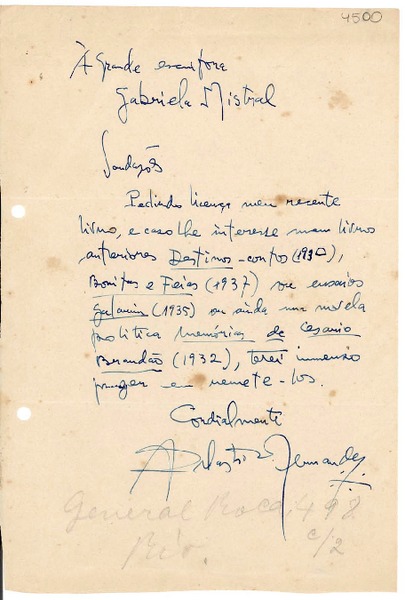 4500
À grande escritora
Gabriela Mistral
Saudações
Pedindo licença meu recente
livro, e caso lhe interesse meus livros
anteriores Destinos - contos (1930),
Bonitas e Feias (1937) ou ensaios
(1935) ou ainda uma novela
política Memórias de Cesario
Brandão (1932), terei immenso
prazer em remete-los.
Cordialmente
Fernandes
General Roca, 498
c/2
Rio.